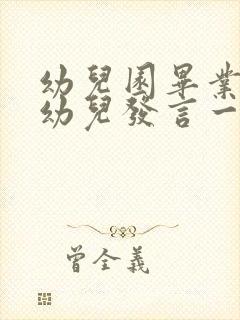 幼兒園畢業
幼兒發言一
曾全義